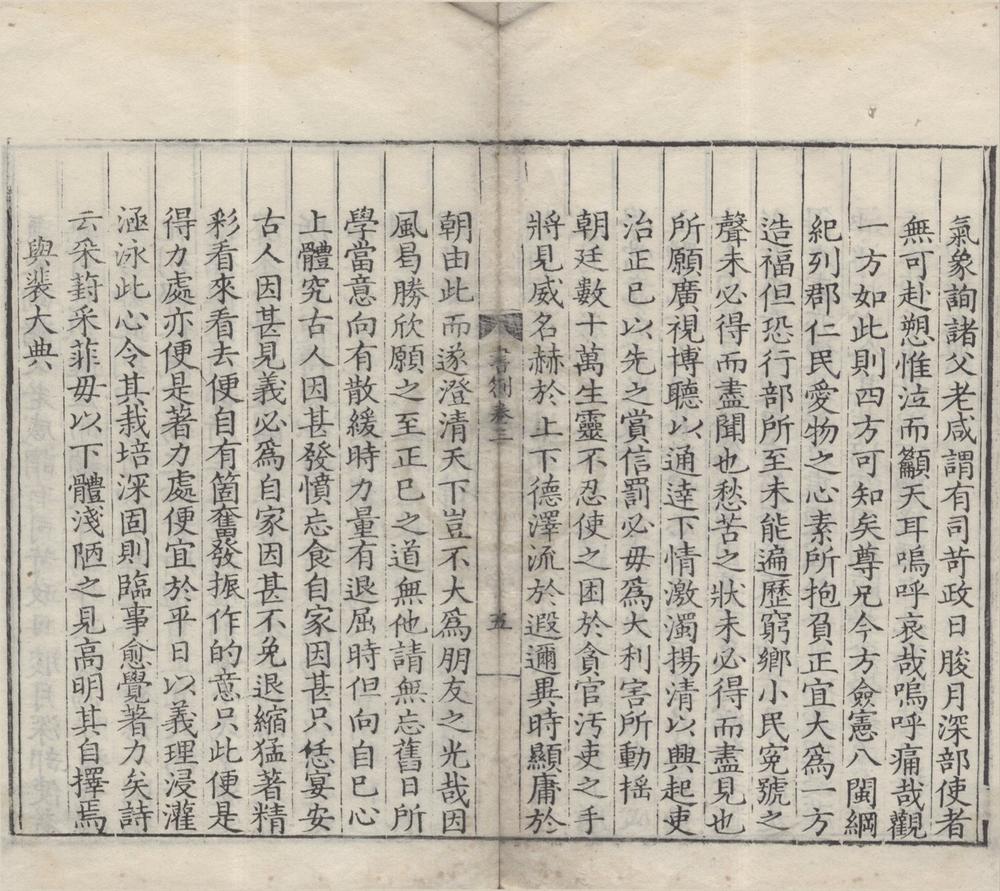 氣象詢諸父老咸謂有司苛政日朘月深部使者
無可赴愬惟泣而籲天耳嗚呼哀哉嗚呼痛哉觀
一方如此則四方可知矣尊兄今方僉憲八閩綱
紀列郡仁民愛物之心素所抱負正宜大為一方
造福但恐行部所至未能遍歷窮鄉小民冤號之
聲未必得而盡聞也愁苦之狀未必得而盡見也
所願廣視博聽以通達下情激濁揚清以興起吏
治正已以先之賞信罰必毋為大利害所動搖
朝廷數十萬生靈不忍使之困於貪官汚吏之手
將見威名赫於上下德澤流於遐邇異時顯庸於
書劄卷三
五
朝由此而遂澄清天下豈不大為朋友之光哉因
風曷勝欣願之至正已之道無他請無忘舊日所
學當意向有散緩時力量有退屈時但向自已心
上體究古人因甚發憤忘食自家因甚只恁宴安
古人因甚見義必為自家因甚不免退縮猛著精
彩看來看去便自有箇奮發振作的意只此便是
得力處亦便是著力處便宜於平日以義理浸灌
涵泳此心令其栽培深固則臨事愈覺著力矣詩
云采葑采菲毋以下體淺陋之見高明其自擇焉
與裴大典